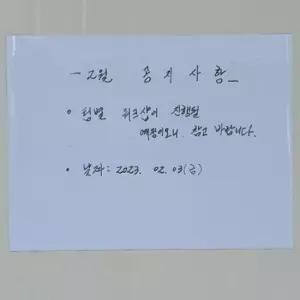 - 2월 공지사항 -
• 팀별 워크샵이 진행될
예정이오니 참고 바랍니다.
• 날짜: 2023. 02. 03(금)